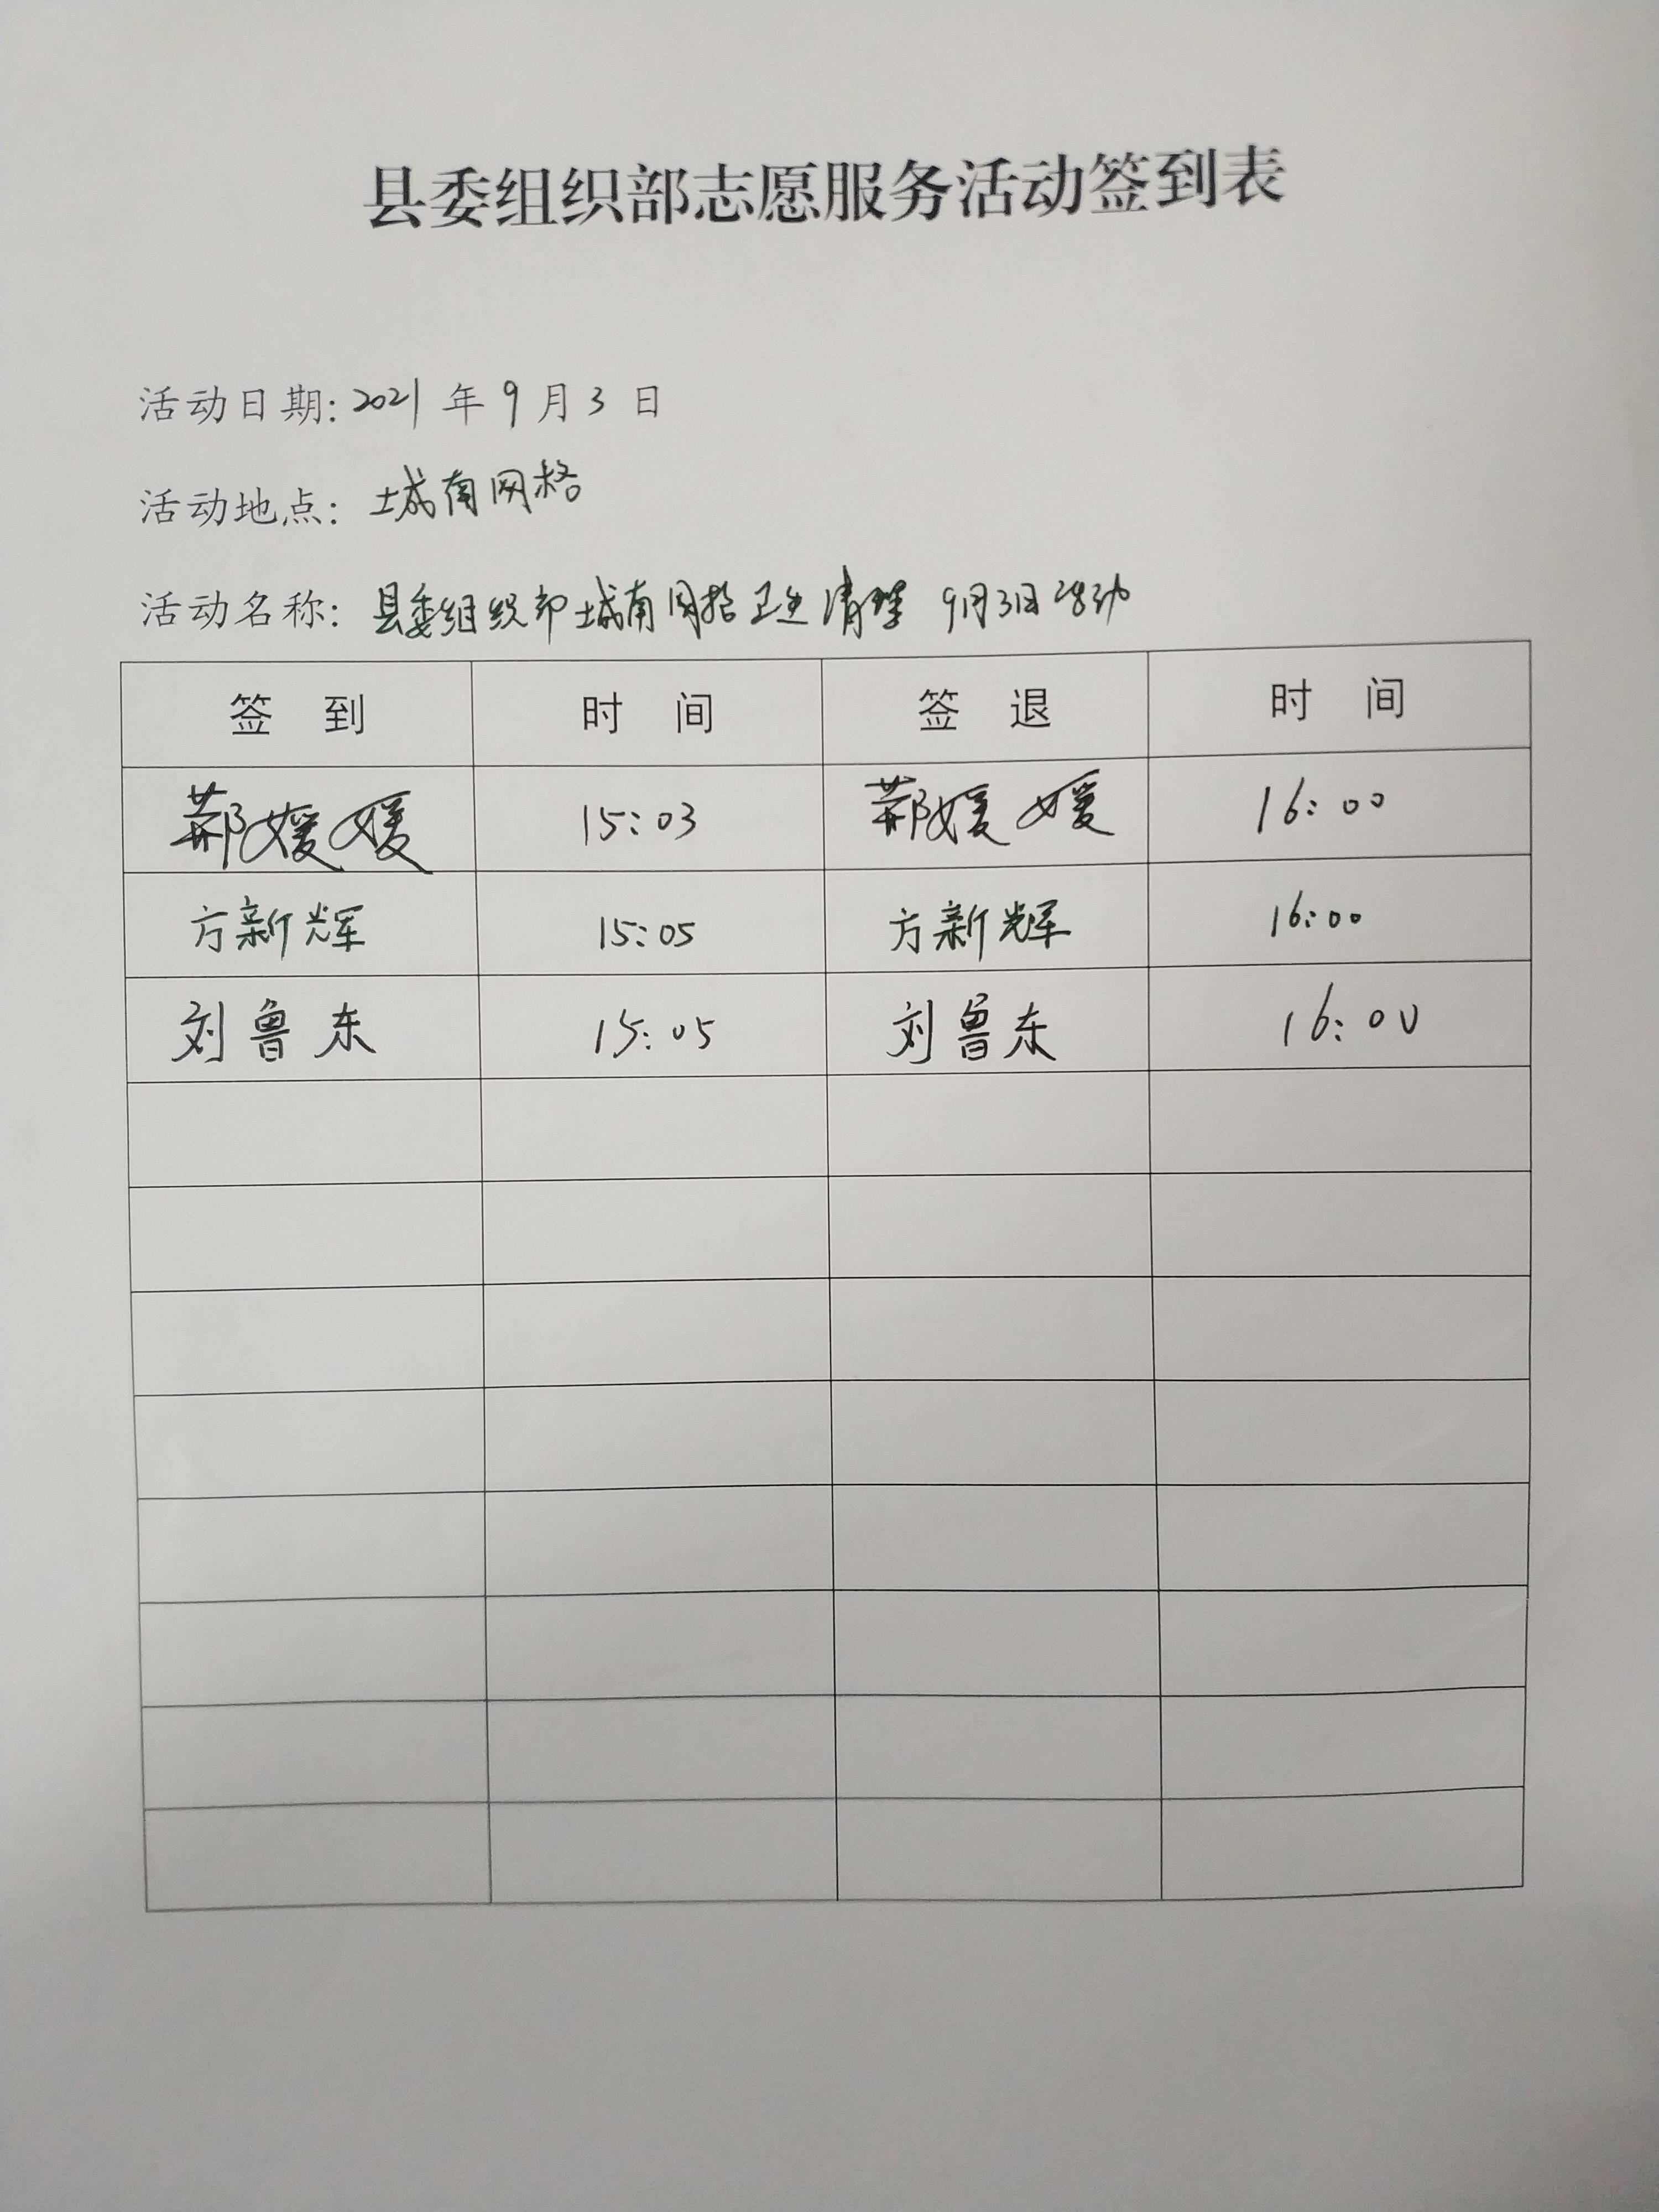 县委组织部志愿服务活动签到表
活动日期: 2021 年 9 月 3 日
活动地点: 城南网格
活动名称: 县委组织部城南网格卫生清理 9月3日活动
签 到 时 间 签 退 时 间
媛媛 15:03 媛媛 16:00
方新辉 15:05 方新辉 16:00
刘鲁东 15:05 刘鲁东 16:00